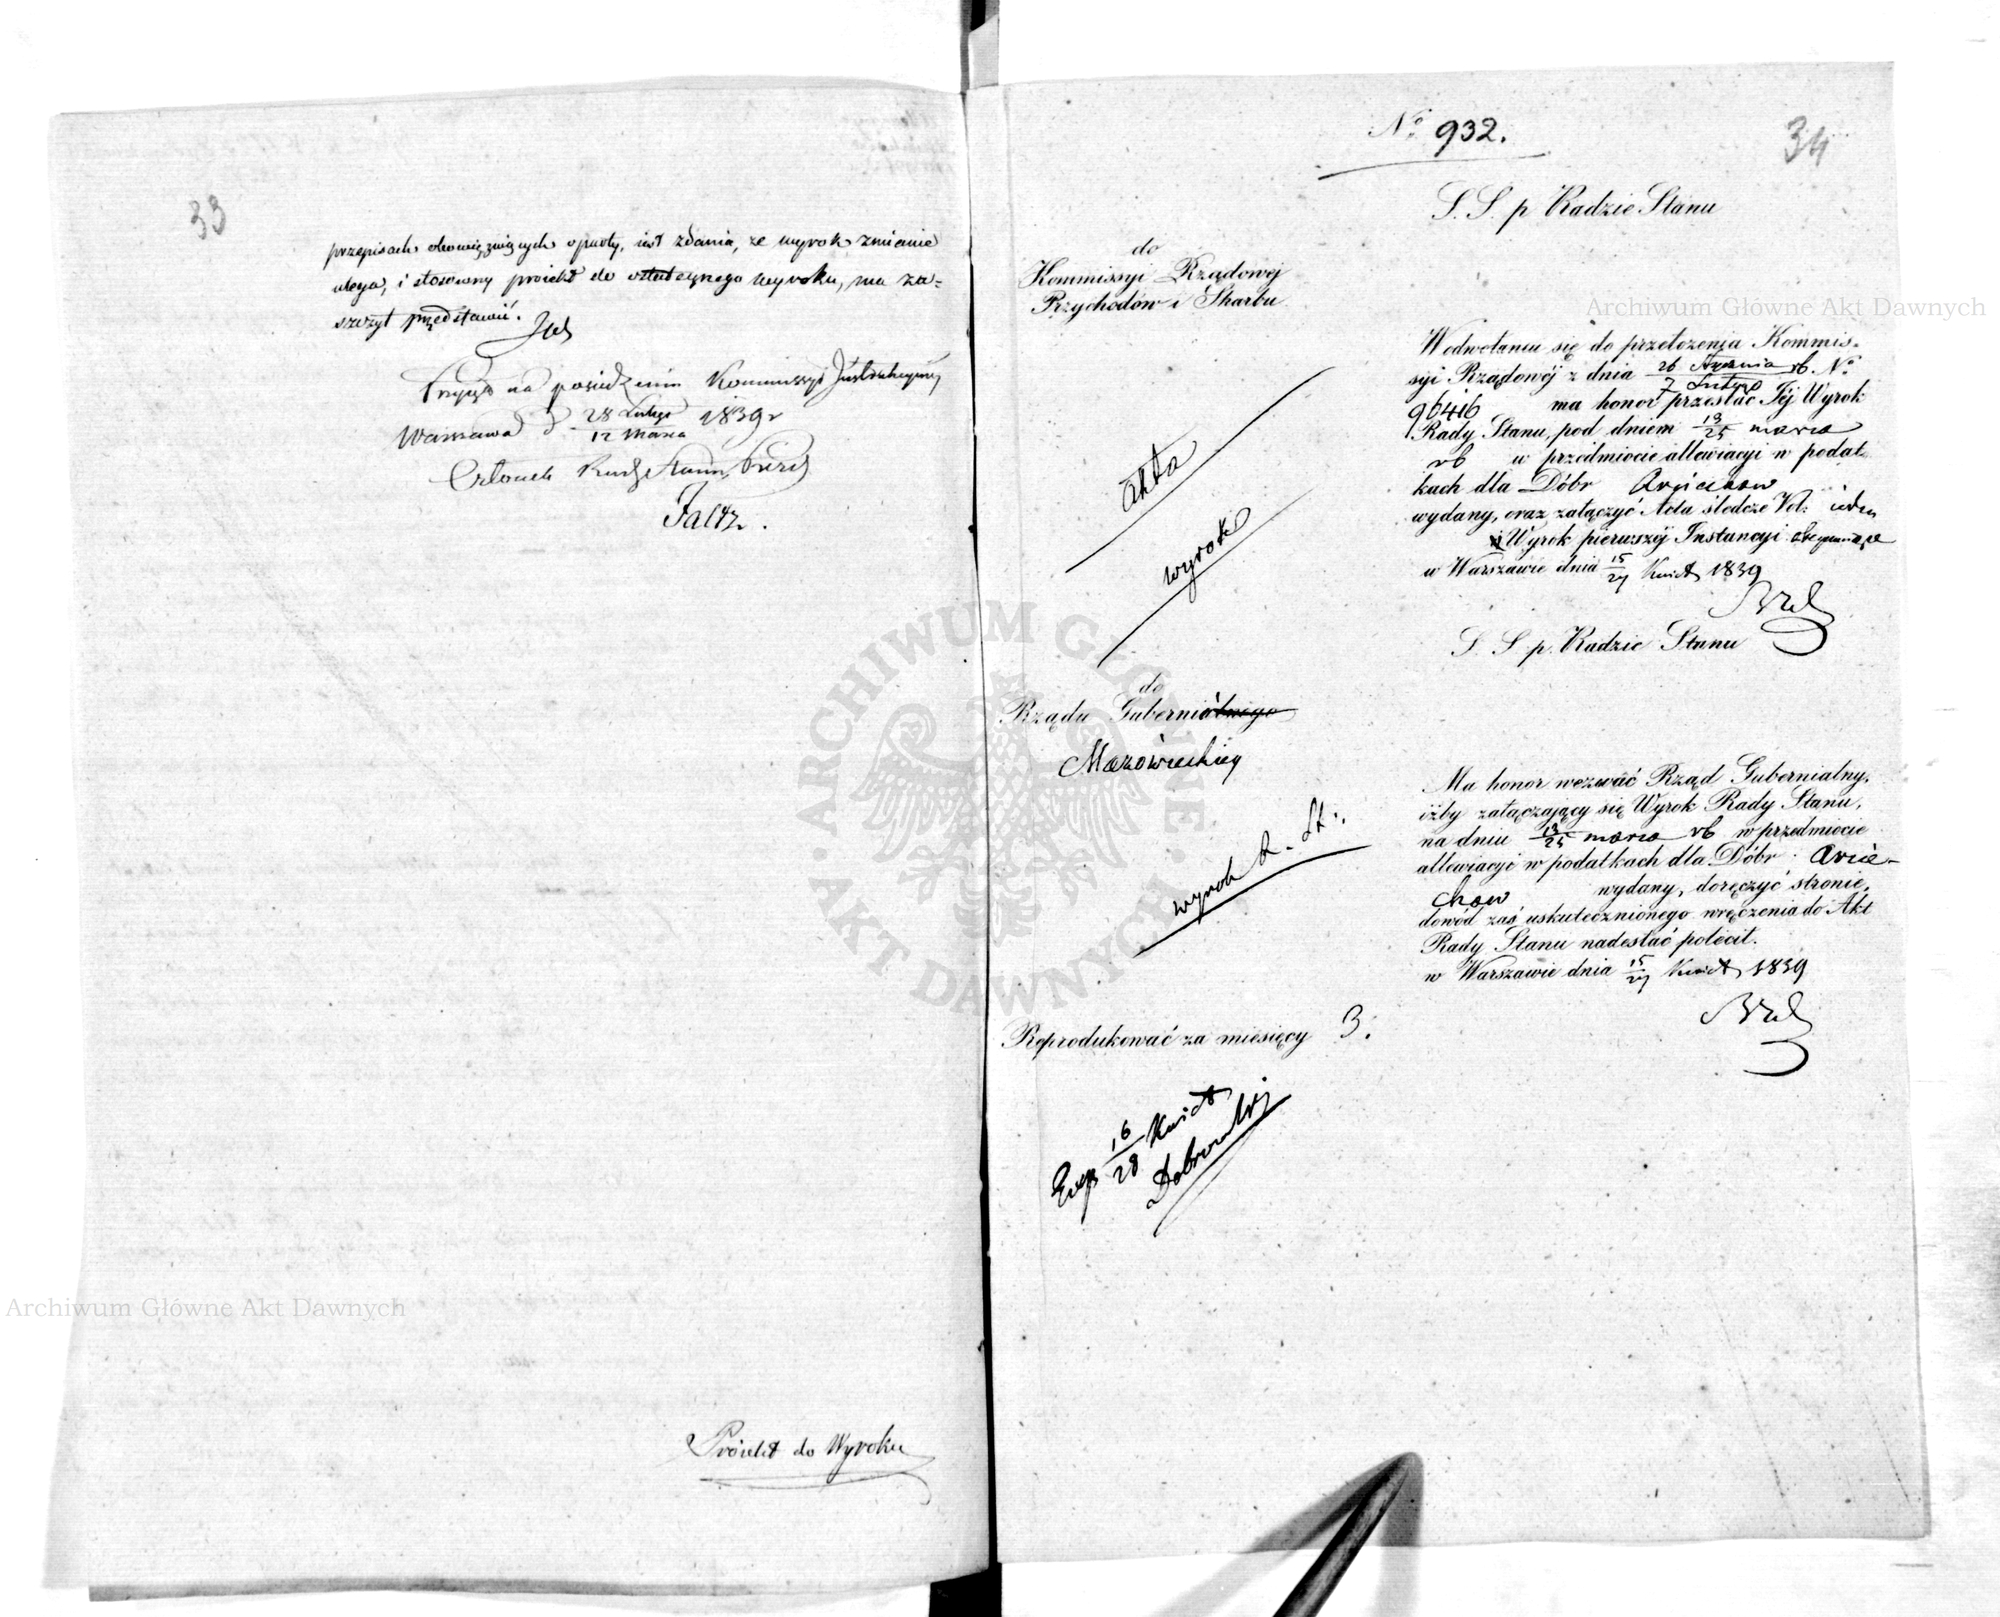 33
przepisach obowięzuiących oparty, iest zdania, że wyrok zmianie
ulega, i stosowny proiekt do ostatecznego wyroku, ma za=
szczyt przedstawić.
na posiedzeniu Kommissyi Instrukcyjney
Warszawa d 28 Lutego / 12 Marca 1839 r
Członek Rady Stanu
Faltz.
Proiekt do Wyroku
34
No 932.
S. S. p Radzie Stanu
do
Kommissyi Rządowej
Przychodów i Skarbu
W odwołaniu się do przełożenia Kommis-
syi Rządowéj z dnia 26 Stycznia / 7 Lutego rb. No
96416 ma honor przesłać Jéj Wyrok
Rady Stanu, pod dniem 13/25 marca
rb w przedmiocie allewiacyi w podat-
kach dla Dóbr
wydany, oraz załączyć Acta śledcze Vol:
i Wyrok pierwszéj Instancyi
w Warszawie dnia 15/27 Kwiet 1839
akta
wyrok
S. S. p. Radzie Stanu
do
Rządu Gubernialnego
Mazowieckiey
Ma honor wezwać Rząd Gubernialny,
iżby załączający się Wyrok Rady Stanu,
na dniu 13/25 marca rb w przedmiocie
allewiacyi w podatkach dla Dóbr
chow wydany, doręczyć stronie,
dowód zaś uskutecznionego wręczenia do Akt
Rady Stanu nadesłać polecił.
w Warszawie dnia 15/27 Kwiet 1839
wyrok R. St:
Reprodukować za miesięcy 3.
16/28 Kwiet
Dobrowolski
Archiwum Główne Akt Dawnych
Archiwum Główne Akt Dawnych
ARCHIWUM GŁÓWNE
AKT DAWNYCH